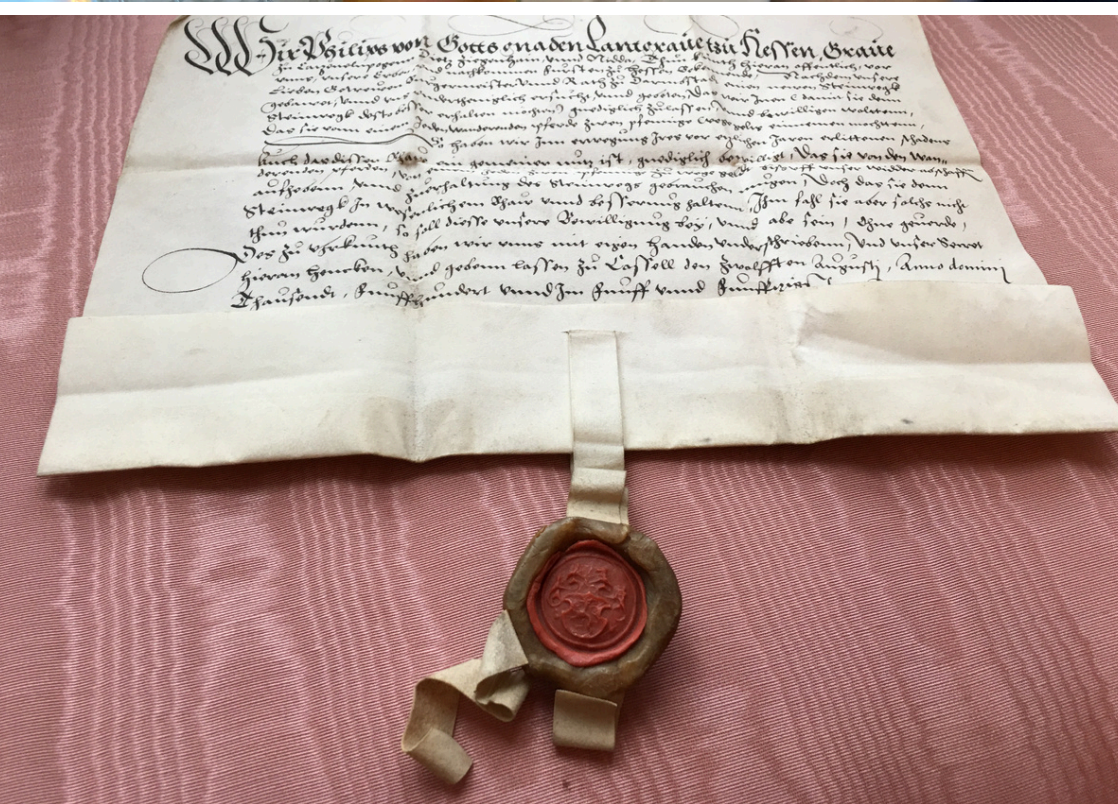 Wir Philips von Gotts gnaden Lantgraue tzu Hessen, Graue
zu Catzenelnpogen Dietz Ziegenhain, vnnd Nidda, Thun kunth hieran offentlich, vor
vnns vnsere Erben vnd nachkomen Fursten zu Hessen Nachdem vnsere
Lieben Getrewen Burgermeister vnnd Rath zu Darmstat einen newen Steinwegk
gebawen, vnnd vns vnderthenig­lich ersucht, vnnd gebeten, das wir Inen damit sie den
Steinwegk desto erhalten mochten gnediglich zulassen vnd bewilligen wolten,
Das sie vom einen Jeden wanderenden pferde zween pfennige wegegelt einemen mochten,
So haben wir Inn erwegung Ires vor Jaren erlittenen schadens
Auch das dissen Baw ein gemeiner nutz ist, gnediglich bewilligt, Das sie von den wan-
derenden pferden, zu wegegelt vnser widder abschaffen
auffheben vnnd zuerhaltung des Steinwegs gebrauchen mugen, Doch das sie den
Steinwegk In wesenlichem Bawe vnnd besserung halten, Im fahl sie aber solchs nicht
thun wurden, so soll diesse vnsere Bewilligung bey, vnnd abe sein, Ohne geuerde,
Des zu vhrkunth haben wir vnns mit eigen handen vnderschriebenn, Vnd vnser Secret
hieran hencken, vnnd gebenn lassen zu Cassell den zwolfften Augusti, Anno domini
Thausendt, Funffhundert vnnd Im Funff vnnd Funfftzigsten